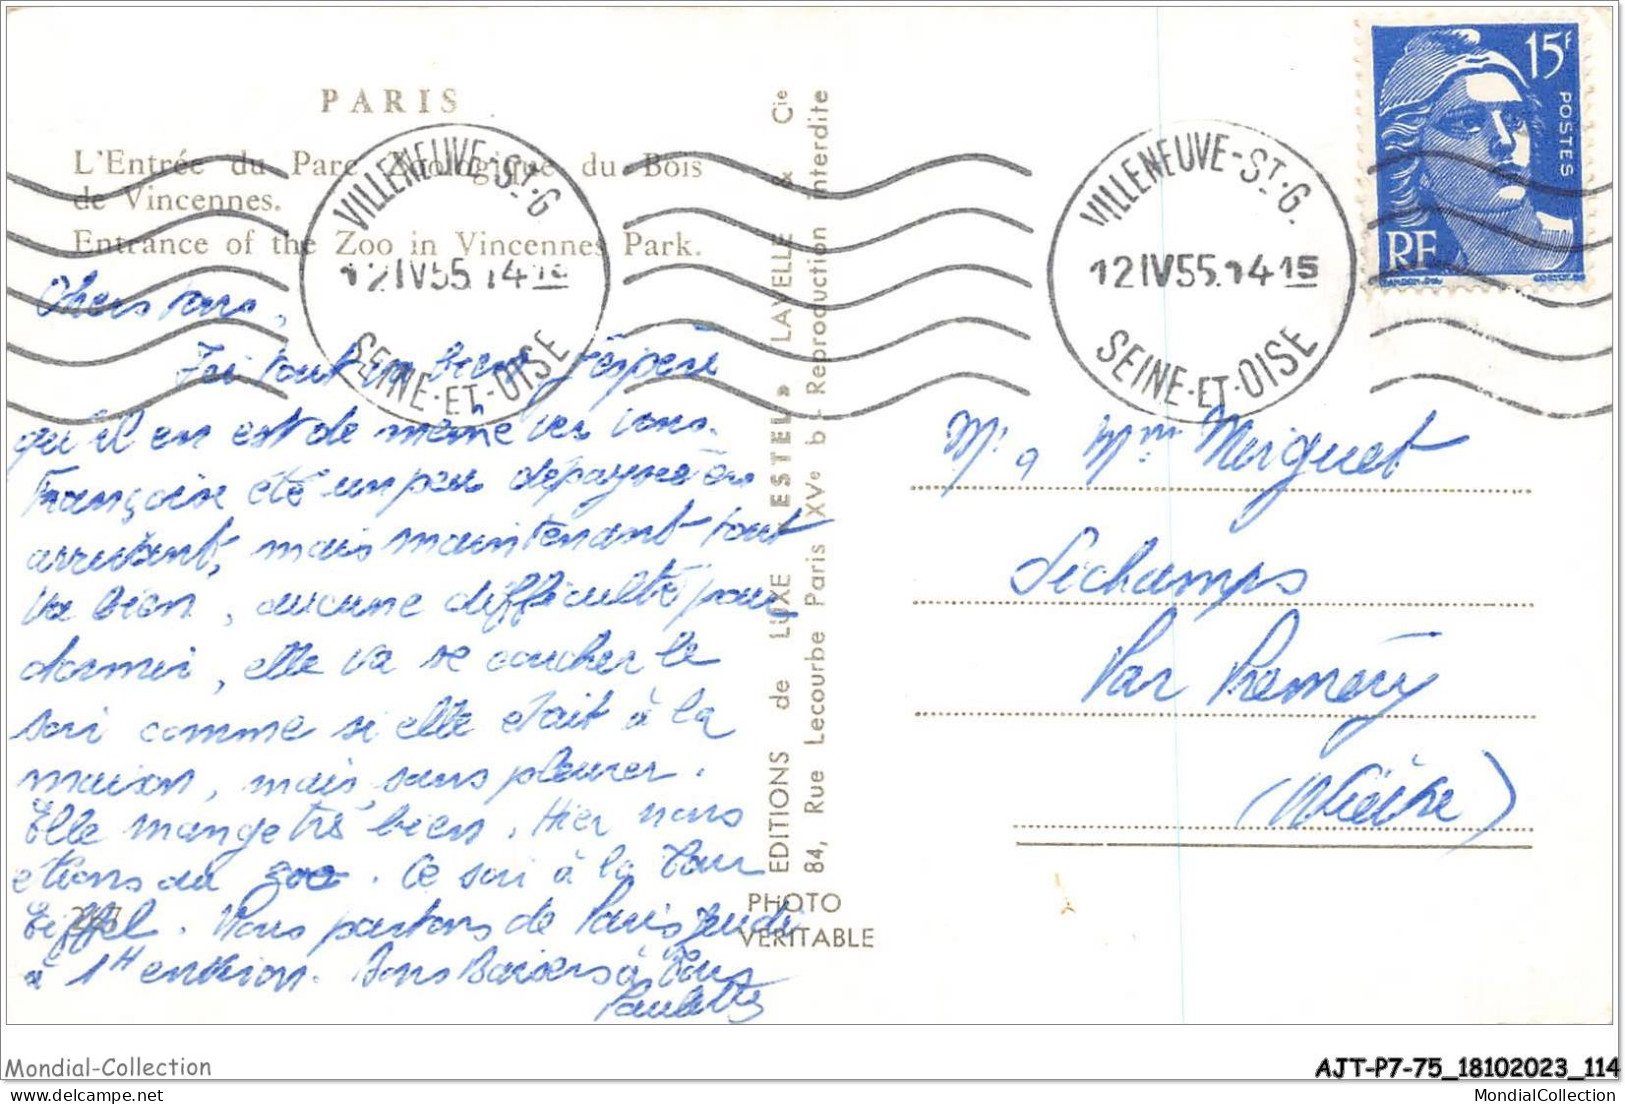 PARIS
L'Entrée du Parc Zoologique du Bois
de Vincennes.
Entrance of the Zoo in Vincennes Park.
VILLENEUVE-St-G
12 IV 55. 14 15
SEINE-ET-OISE
VILLENEUVE-St-G.
12 IV 55. 14 15
SEINE-ET-OISE
15F
POSTES
RF
GANDON.DEL
CORTOT.SC
Chers tous,
Ici tout va bien j'espère
qu'il en est de même chez vous.
Françoise été un peu dépaysée en
arrivant, mais maintenant tout
va bien, aucune difficulté pour
dormir, elle va se coucher le
soir comme si elle était à la
maison, mais sans pleurer.
Elle mange très bien. Hier nous
étions au zoo. Ce soir à la Tour
Eiffel. Nous partons de Paris jeudi
à 1H environ. Bons Baisers à Tous
Paulette
EDITIONS de LUXE "ESTEL" LAVELLE & Cie
84, Rue Lecourbe Paris XVe b - Reproduction interdite
PHOTO
VERITABLE
Mr & Mme Merguet
Sichamps
Par Prémery
(Nièvre)
Mondial-Collection
AJT-P7-75_18102023_114
MondialCollection